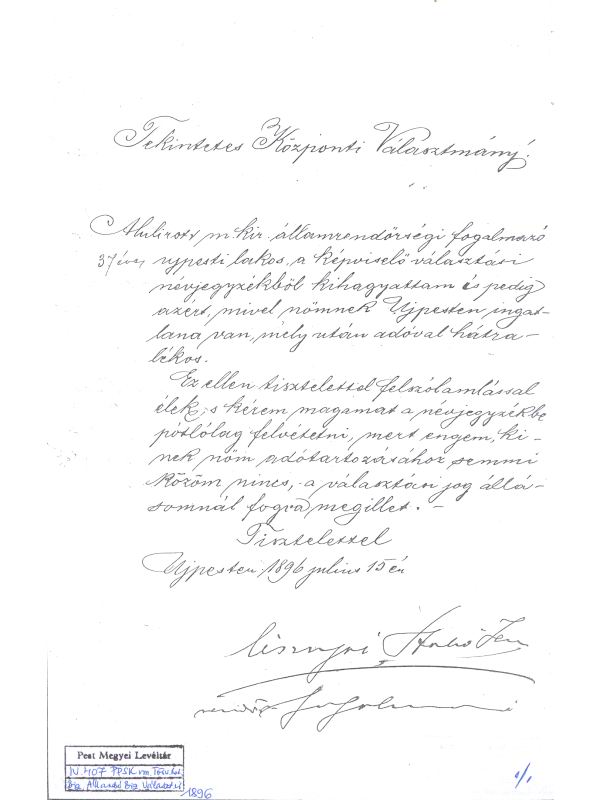 Tekintetes Központi Választmány!
Alulirott m. kir. államrendőrségi fogalmazó
37 éves ujpesti lakos, a képviselő választási
névjegyzékből kihagyattam és pedig
azért, mivel nőmnek Ujpesten ingat-
lana van, mely után adóval hátra-
lékos.
Ez ellen tisztelettel felszólamlással
élek, s kérem magamat a névjegyzékbe
pótlólag felvétetni, mert engem, ki-
nek nőm adótartozásához semmi
közöm nincs, a választási jog állá-
somnál fogva megillet. –
Tisztelettel
Ujpesten 1896 július 15 én
Lisznyai Szabó Jenő
rendőr fogalmazó
Pest Megyei Levéltár
IV. 407 PPSK vm. Törv. hat.
Biz. Állandó Biz. Választási
1896
1/1